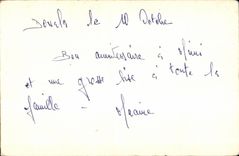 Douala le 10 Octobre
Bon anniversaire à Mimi
et une grosse bise à toute la
famille -